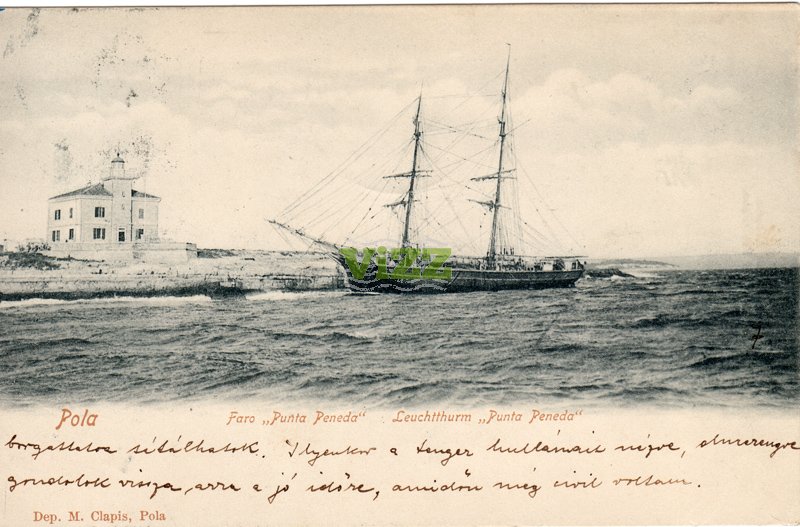 vizz
Pola Faro „Punta Peneda“ Leuchtthurm „Punta Peneda“
sétálhatok. Ilyenkor a tenger hullámait nézve, elmerengve
gondolok vissza, arra a jó időre, amidőn még civil voltam.
Dep. M. Clapis, Pola